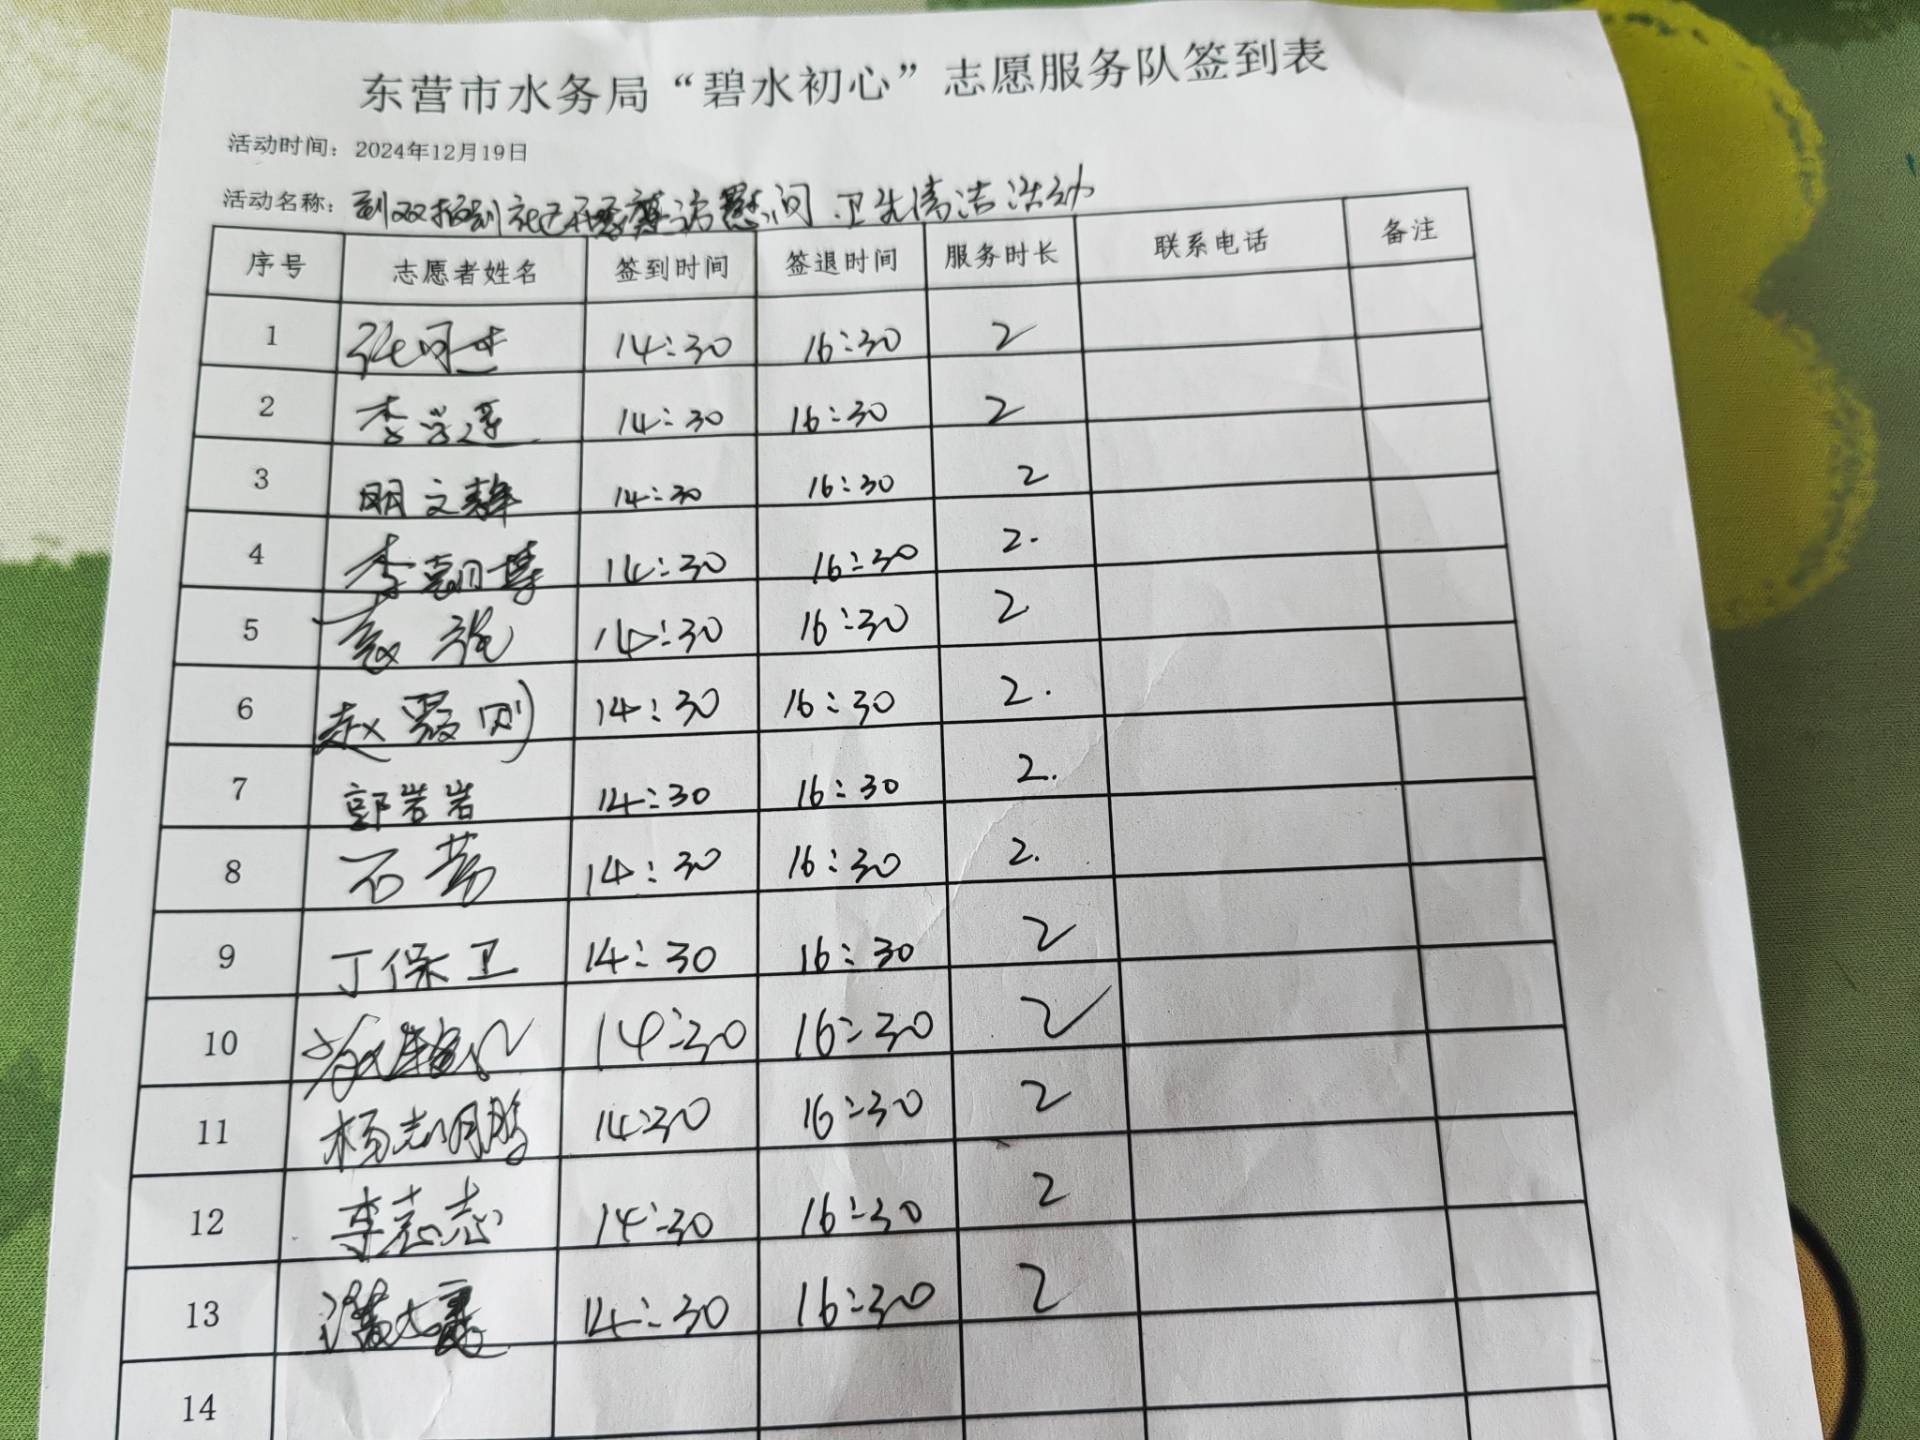 东营市水务局“碧水初心”志愿服务队签到表
活动时间：2024年12月19日
活动名称：到双报到社区开展走访慰问 卫生清洁活动
序号 志愿者姓名 签到时间 签退时间 服务时长 联系电话 备注
1 14:30 16:30 2
2 李学莲 14:30 16:30 2
3 明文静 14:30 16:30 2
4 李朝博 14:30 16:30 2.
5 14:30 16:30 2
6 赵霞刚 14:30 16:30 2.
7 郭岩岩 14:30 16:30 2.
8 石营 14:30 16:30 2.
9 丁保卫 14:30 16:30 2
10 14:30 16:30 2
11 杨志鹏 14:30 16:30 2
12 李志志 14:30 16:30 2
13 14:30 16:30 2
14